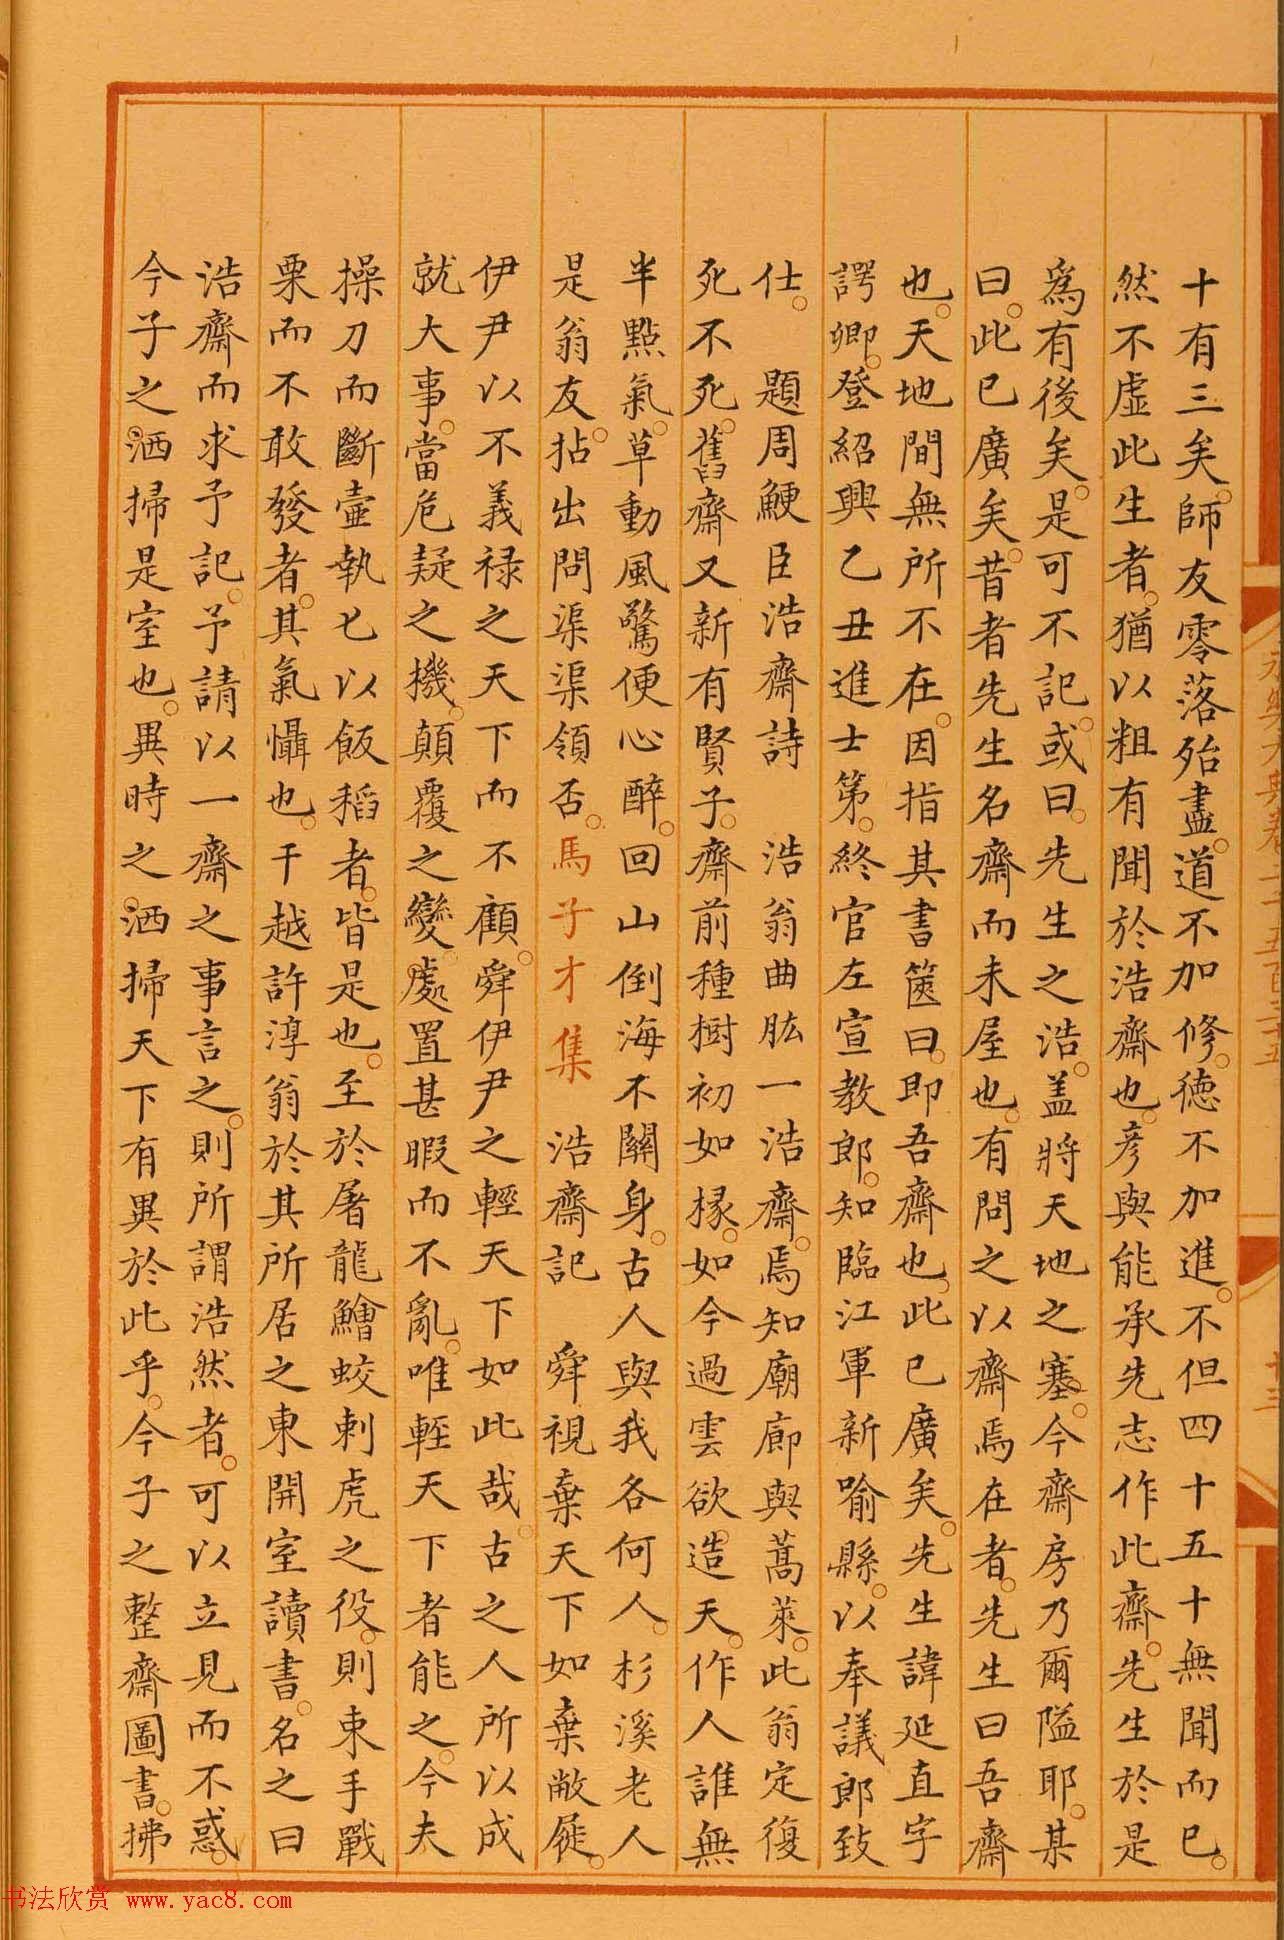 十有三矣。師友零落殆盡。道不加修。德不加進。不但四十五十無聞而已。
然不虛此生者。猶以粗有聞於浩齋也。彥與能承先志作此齋。先生於是
爲有後矣。是可不記。或曰。先生之浩。盖將天地之塞。今齋房乃爾隘耶。某
曰。此已廣矣。昔者先生名齋而未屋也。有問之以齋焉在者。先生曰吾齋
也。天地間無所不在。因指其書篋曰。即吾齋也。此已廣矣。先生諱延直字
諤卿。登紹興乙丑進士第。終官左宣教郎。知臨江軍新喻縣。以奉議郎致
仕。 題周鯁臣浩齋詩 浩翁曲肱一浩齋。焉知廟廊與蒿萊。此翁定復
死不死。舊齋又新有賢子。齋前種樹初如椽。如今過雲欲造天。作人誰無
半點氣。草動風驚便心醉。回山倒海不關身。古人與我各何人。杉溪老人
是翁友。拈出問渠渠領否。馬子才集 浩齋記 舜視棄天下如棄敝屣。
伊尹以不義祿之天下而不顧。舜伊尹之輕天下如此哉。古之人所以成
就大事。當危疑之機。顛覆之變。處置甚暇而不亂。唯輕天下者能之。今夫
操刀而斷壺執匕以飯稻者。皆是也。至於屠龍鱠蛟刺虎之役。則束手戰
栗而不敢發者。其氣懾也。干越許淳翁於其所居之東開室讀書。名之曰
浩齋而求予記。予請以一齋之事言之。則所謂浩然者。可以立見而不惑。
今子之洒掃是室也。異時之洒掃天下有異於此乎。今子之整齋圖書。拂
书法欣赏 www.yac8.com